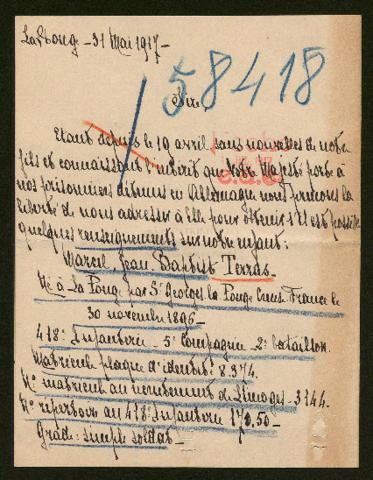 La Poug - 31 Mai 1917 -
58418
Sire,
Etant depuis le 19 avril sans nouvelles de notre
fils et connaissant l'intérêt que Votre Majesté porte à
nos prisonniers détenus en Allemagne nous prenons la
liberté de nous adresser à Elle pour obtenir s'il est possible
quelques renseignements sur notre enfant :
Marcel Jean Baptiste Terras.
Né à La Poug par St Georges la Pouge Creuse France le
30 novembre 1896 -
418e Infanterie - 5e Compagnie - 2e bataillon.
Matricule plaque d'identité 8.374.
No matricule au recrutement de Limoges - 3144.
No répertoire au 418e Infanterie 170.50 -
Grade : simple soldat -